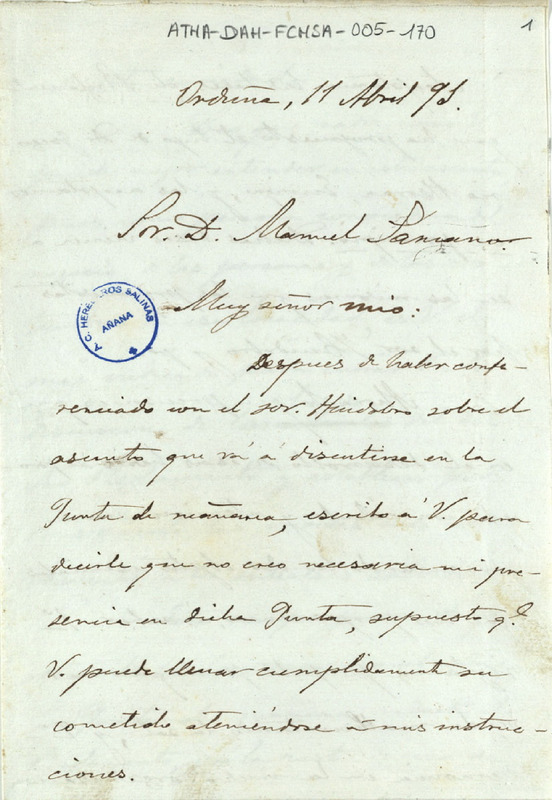 ATHA-DAH-FCHSA-005-170
1
Orduña, 11 Abril 91.
Sor. D. Manuel
Muy señor mio:
A.C. HEREDEROS SALINAS
AÑANA
Despues de haber confe-
renciado con el sor. Huidobro sobre el
asunto que vá á discutirse en la
Junta de mañana, escribo á V. para
decirle que no creo necesaria mi pre-
sencia en dicha Junta, supuesto q.e
V. puede llenar cumplidamente su
cometido ateniéndose á mis instruc-
ciones.